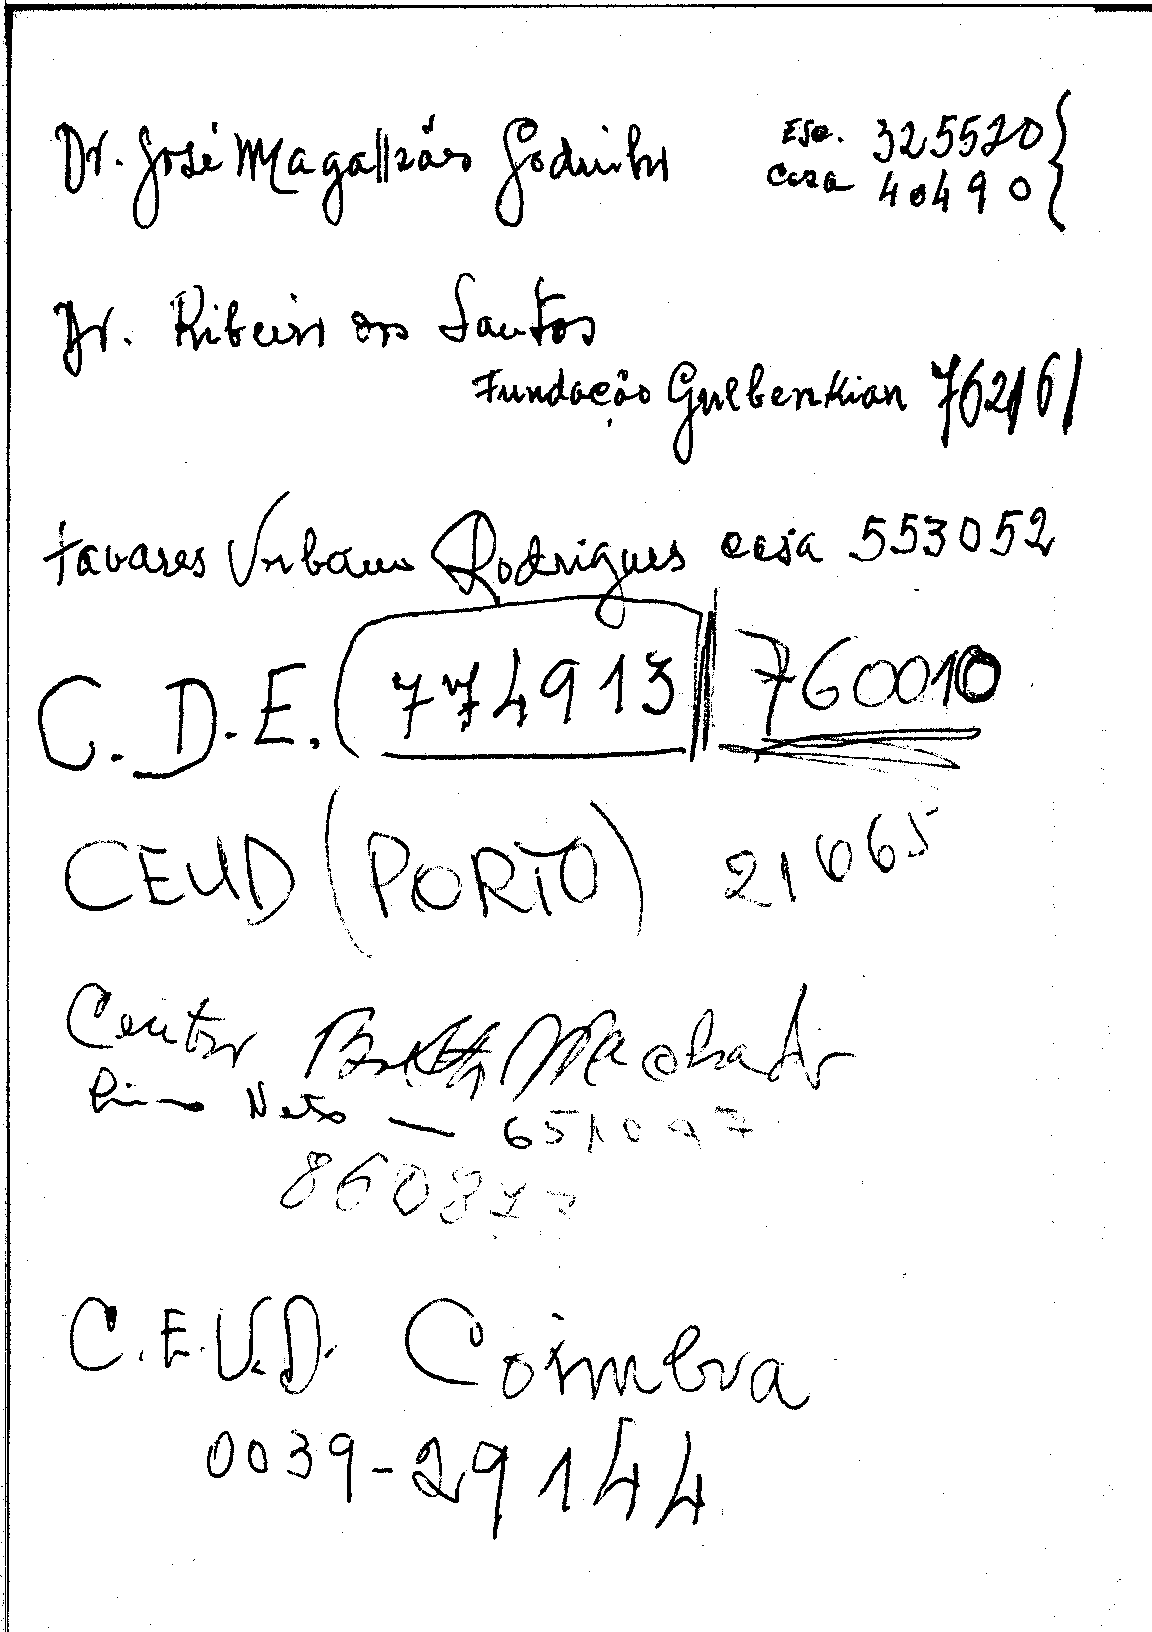 Dr. José Magalhães Godinho Esc. 325520
Casa 40490
Dr. Ribeiro dos Santos
Fundação Gulbenkian 762161
Tavares Urbano Rodrigues casa 553052
C. D. E. 774913 760010
CEUD (PORTO) 21665
Centro Machado
Neto — 651097
C.E.U.D. Coimbra
0039-29144